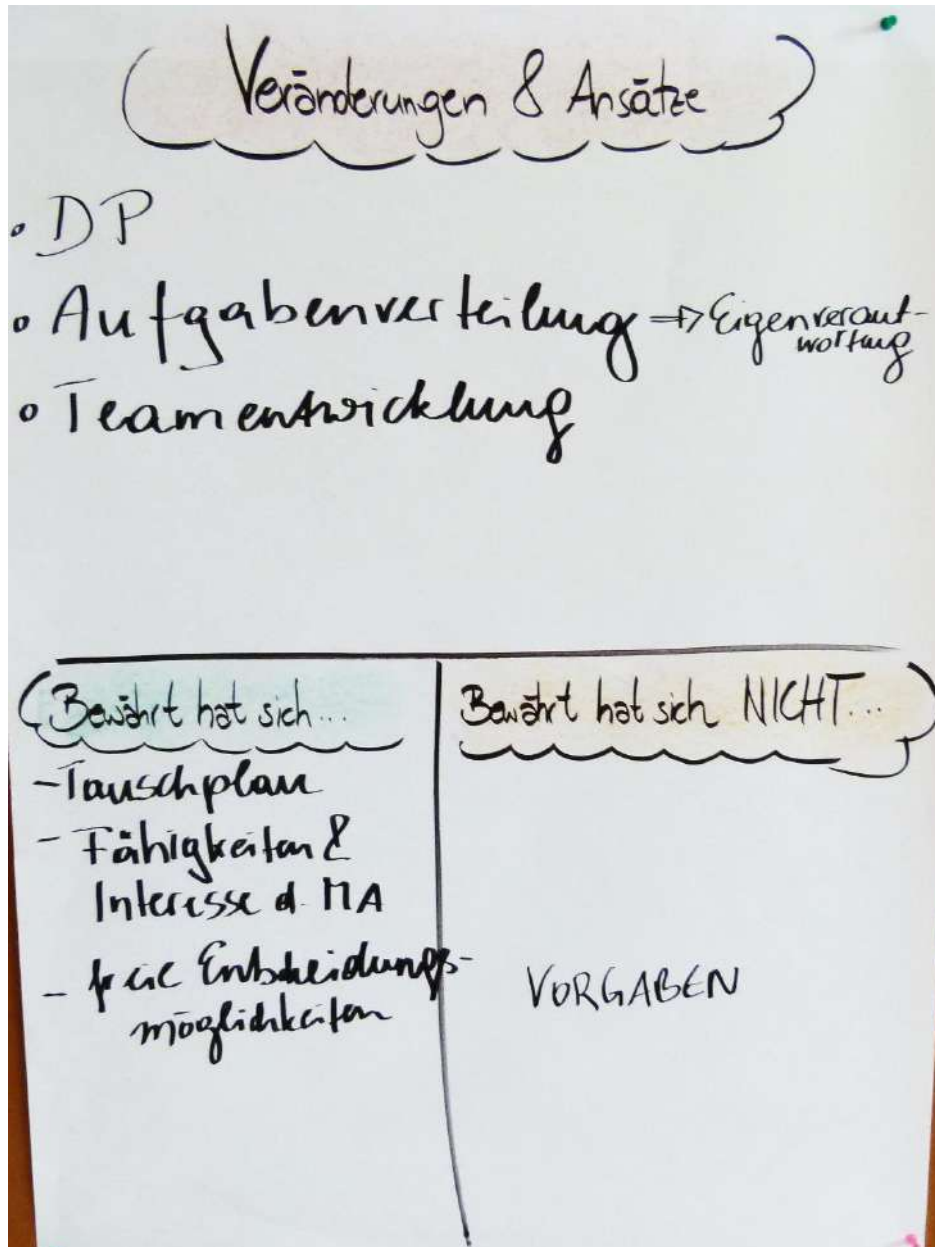 Veränderungen & Ansätze
• DP
• Aufgabenverteilung => Eigenverant-
wortung
• Teamentwicklung
Bewährt hat sich...
- Tauschplan
- Fähigkeiten &
Interesse d. MA
- freie Entscheidungs-
möglichkeiten
Bewährt hat sich NICHT...
VORGABEN